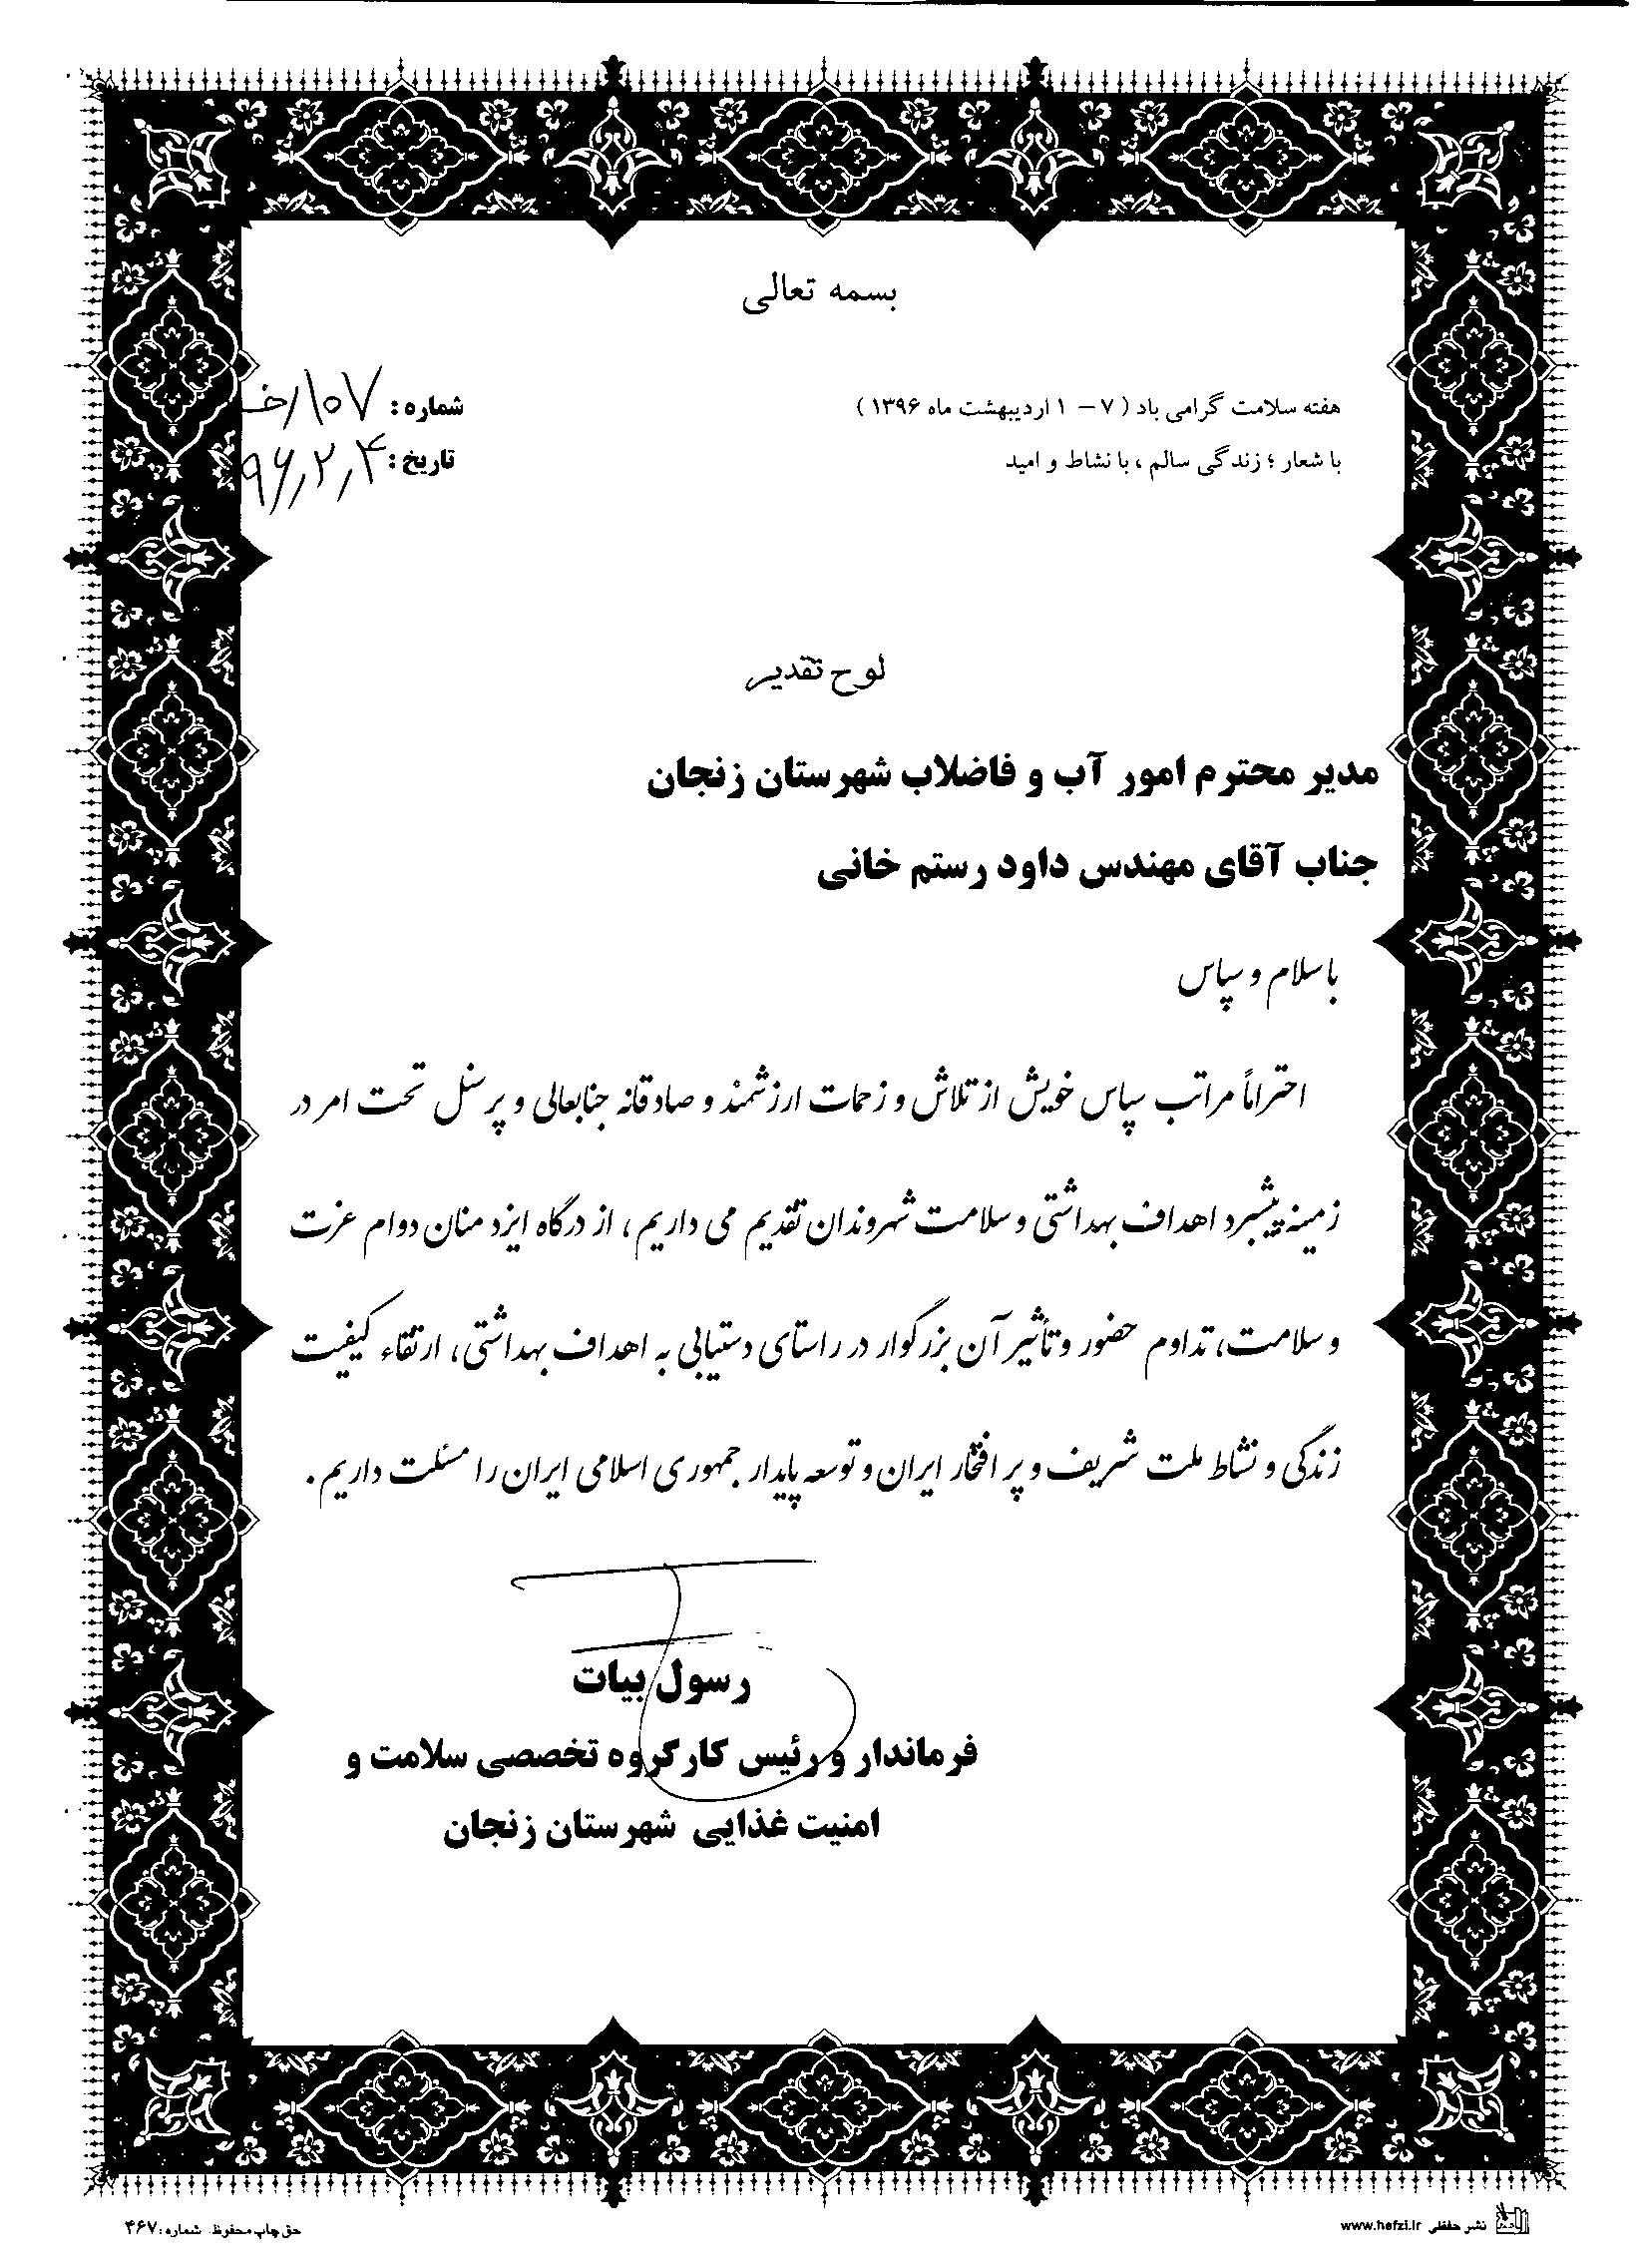 بسمه تعالی
هفته سلامت گرامی باد ( ۷ – ۱ اردیبهشت ماه ۱۳۹۶ )
شماره : ۱۰۷/خ
با شعار ؛ زندگی سالم ، با نشاط و امید
تاریخ : ۹۶,۲,۴
لوح تقدیر
مدیر محترم امور آب و فاضلاب شهرستان زنجان
جناب آقای مهندس داود رستم خانی
با سلام و سپاس
احتراماً مراتب سپاس خویش از تلاش و زحمات ارزشمند و صادقانه جنابعالی و پرسنل تحت امر در
زمینه پیشبرد اهداف بهداشتی و سلامت شهروندان تقدیم می داریم ، از درگاه ایزد منان دوام عزت
و سلامت، تداوم حضور و تأثیر آن بزرگوار در راستای دستیابی به اهداف بهداشتی، ارتقاء کیفیت
زندگی و نشاط ملت شریف و پر افتخار ایران و توسعه پایدار جمهوری اسلامی ایران را مسئلت داریم .
رسول بیات
فرماندار و رئیس کارگروه تخصصی سلامت و
امنیت غذایی شهرستان زنجان
نشر حفظی www.hefzi.ir
حق چاپ محفوظ. شماره: ۴۶۷